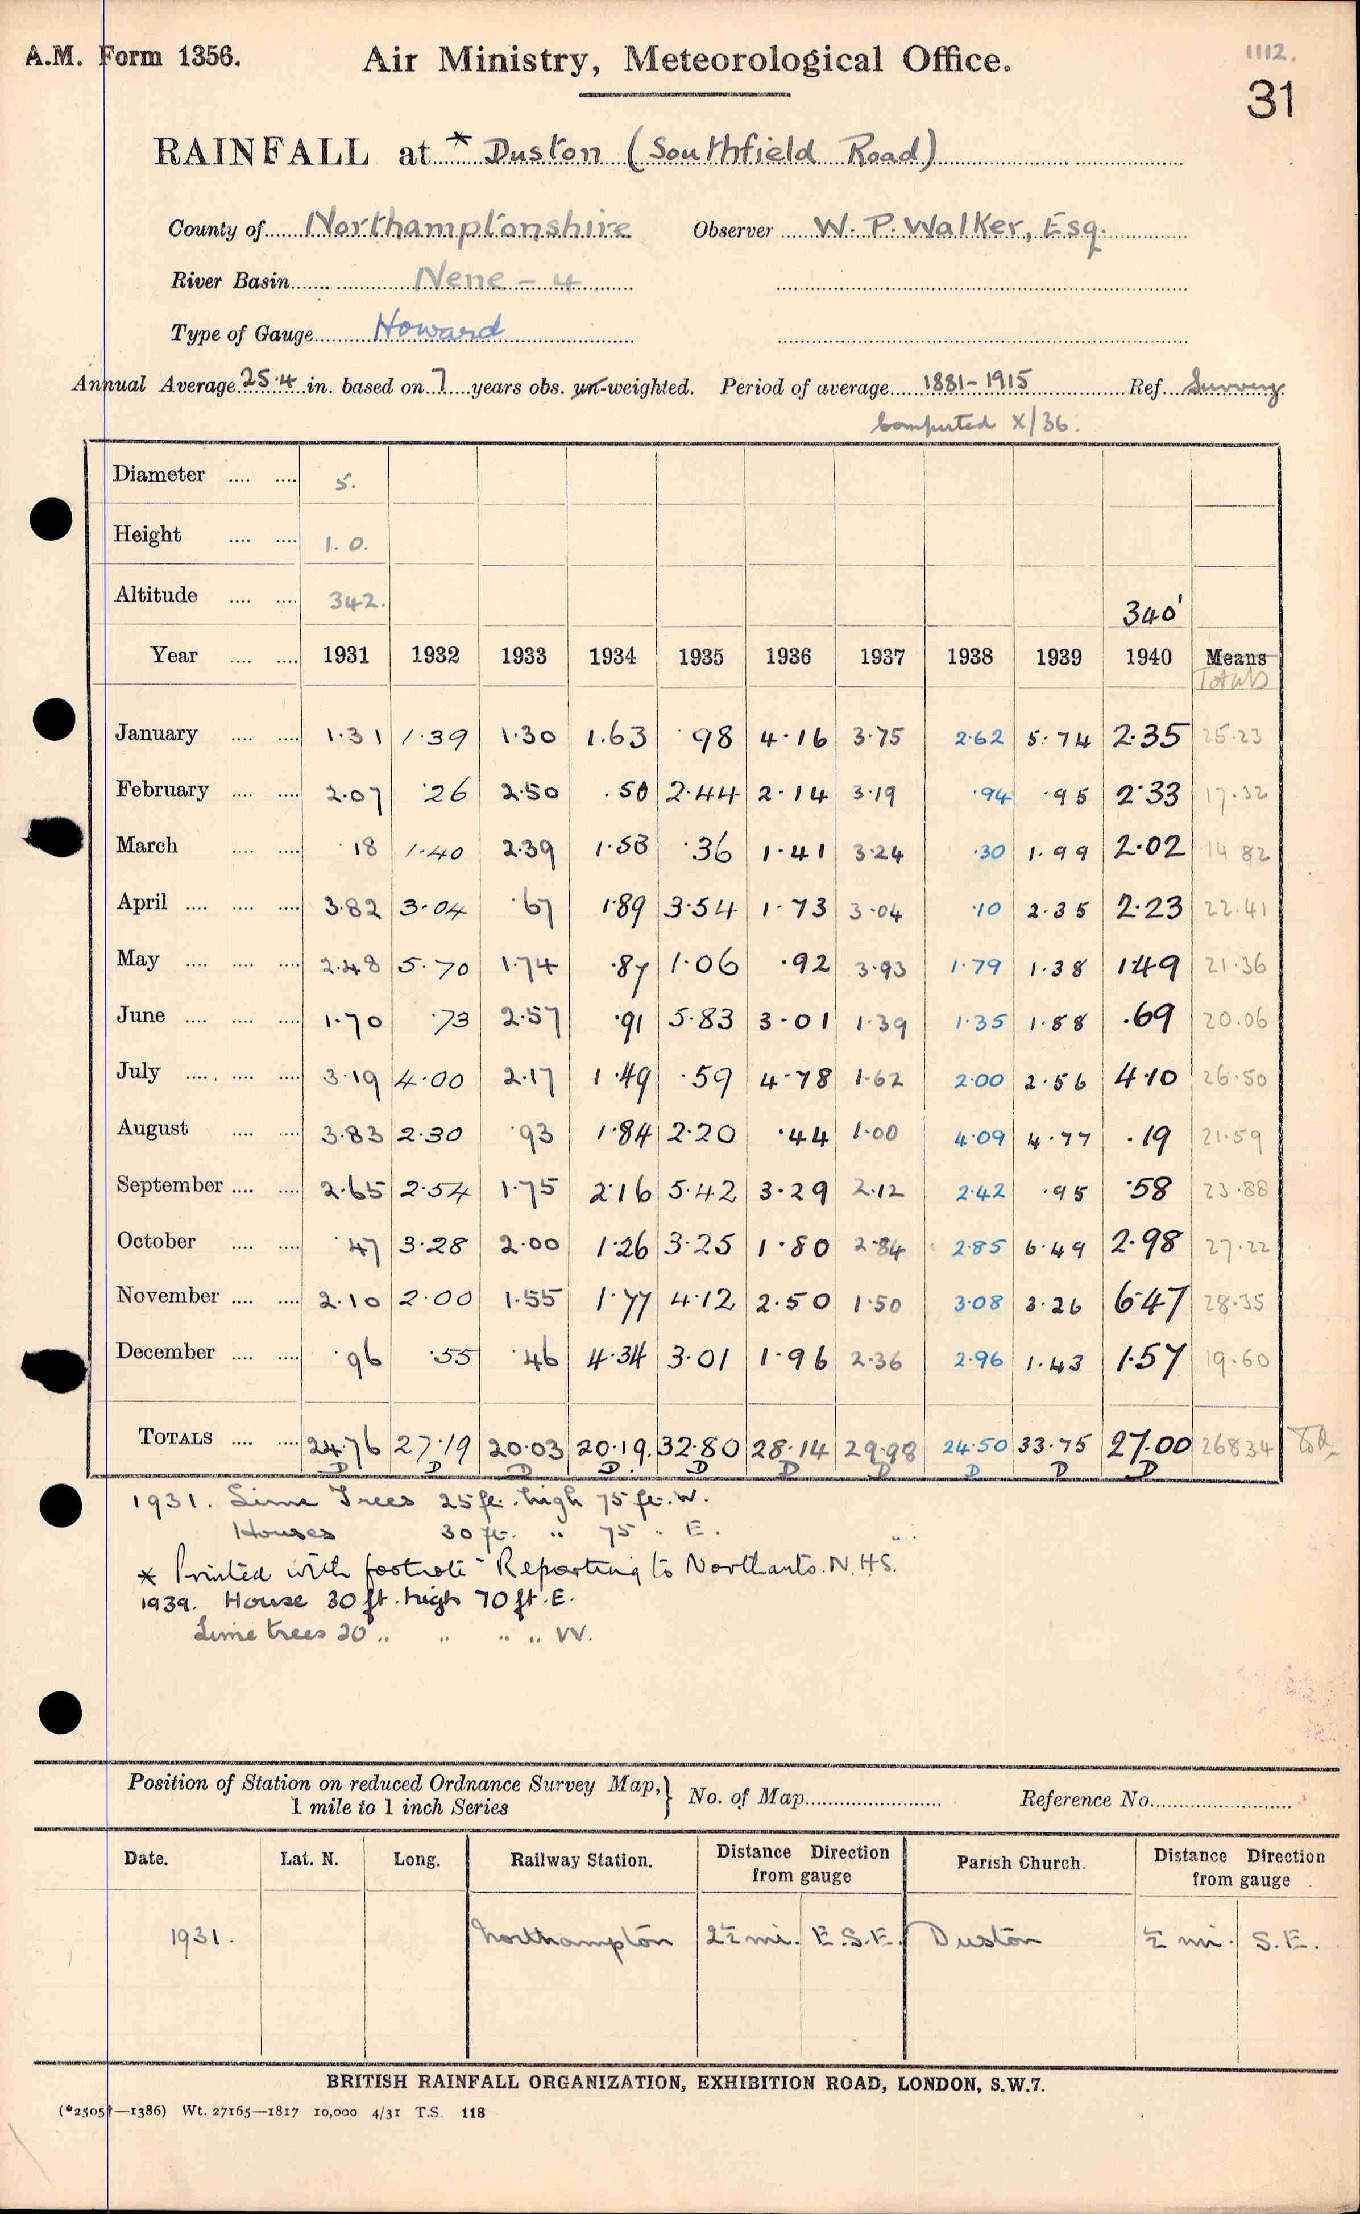 A.M. Form 1356.
Air Ministry, Meteorological Office.
1112.
31
RAINFALL at * Duston (Southfield Road)
County of Northamptonshire Observer W. P. Walker, Esq.
River Basin Nene - 4
Type of Gauge Howard
Annual Average 25.4 in. based on 7 years obs. un-weighted. Period of average 1881-1915 Ref. Survey
Computed X/36.
Diameter 5.
Height 1.0.
Altitude 342. 340'
Year 1931 1932 1933 1934 1935 1936 1937 1938 1939 1940 Means
Totals
January 1.31 1.39 1.30 1.63 .98 4.16 3.75 2.62 5.74 2.35 25.23
February 2.07 .26 2.50 .50 2.44 2.14 3.19 .94 .95 2.33 17.32
March .18 1.40 2.39 1.53 .36 1.41 3.24 .30 1.99 2.02 14 82
April 3.82 3.04 .67 1.89 3.54 1.73 3.04 .10 2.35 2.23 22.41
May 2.48 5.70 1.74 .87 1.06 .92 3.93 1.79 1.38 1.49 21.36
June 1.70 .73 2.57 .91 5.83 3.01 1.39 1.35 1.88 .69 20.06
July 3.19 4.00 2.17 1.49 .59 4.78 1.62 2.00 2.56 4.10 26.50
August 3.83 2.30 .93 1.84 2.20 .44 1.00 4.09 4.77 .19 21.59
September 2.65 2.54 1.75 2.16 5.42 3.29 2.12 2.42 .95 .58 23.88
October .47 3.28 2.00 1.26 3.25 1.80 2.84 2.85 6.49 2.98 27.22
November 2.10 2.00 1.55 1.77 4.12 2.50 1.50 3.08 3.26 6.47 28.35
December .96 .55 .46 4.34 3.01 1.96 2.36 2.96 1.43 1.57 19.60
TOTALS 24.76 27.19 20.03 20.19. 32.80 28.14 29.98 24.50 33.75 27.00 26834
D D D D D D D D D D
1931. Lime Trees 25 ft. high 75 ft. W.
Houses 30 ft. " 75 " E.
* Printed with footnote "Reporting to Northants. N.H.S."
1939. House 30 ft. high 70 ft. E.
Lime trees 20 " " " " W.
Position of Station on reduced Ordnance Survey Map, } No. of Map Reference No.
1 mile to 1 inch Series
Date. Lat. N. Long. Railway Station. Distance Direction from gauge Parish Church. Distance Direction from gauge
1931. Northampton 2½ mi. E.S.E. Duston ½ mi. S.E.
BRITISH RAINFALL ORGANIZATION, EXHIBITION ROAD, LONDON, S.W.7.
(*2505†—1386) Wt. 27165—1817 10,000 4/31 T.S. 118